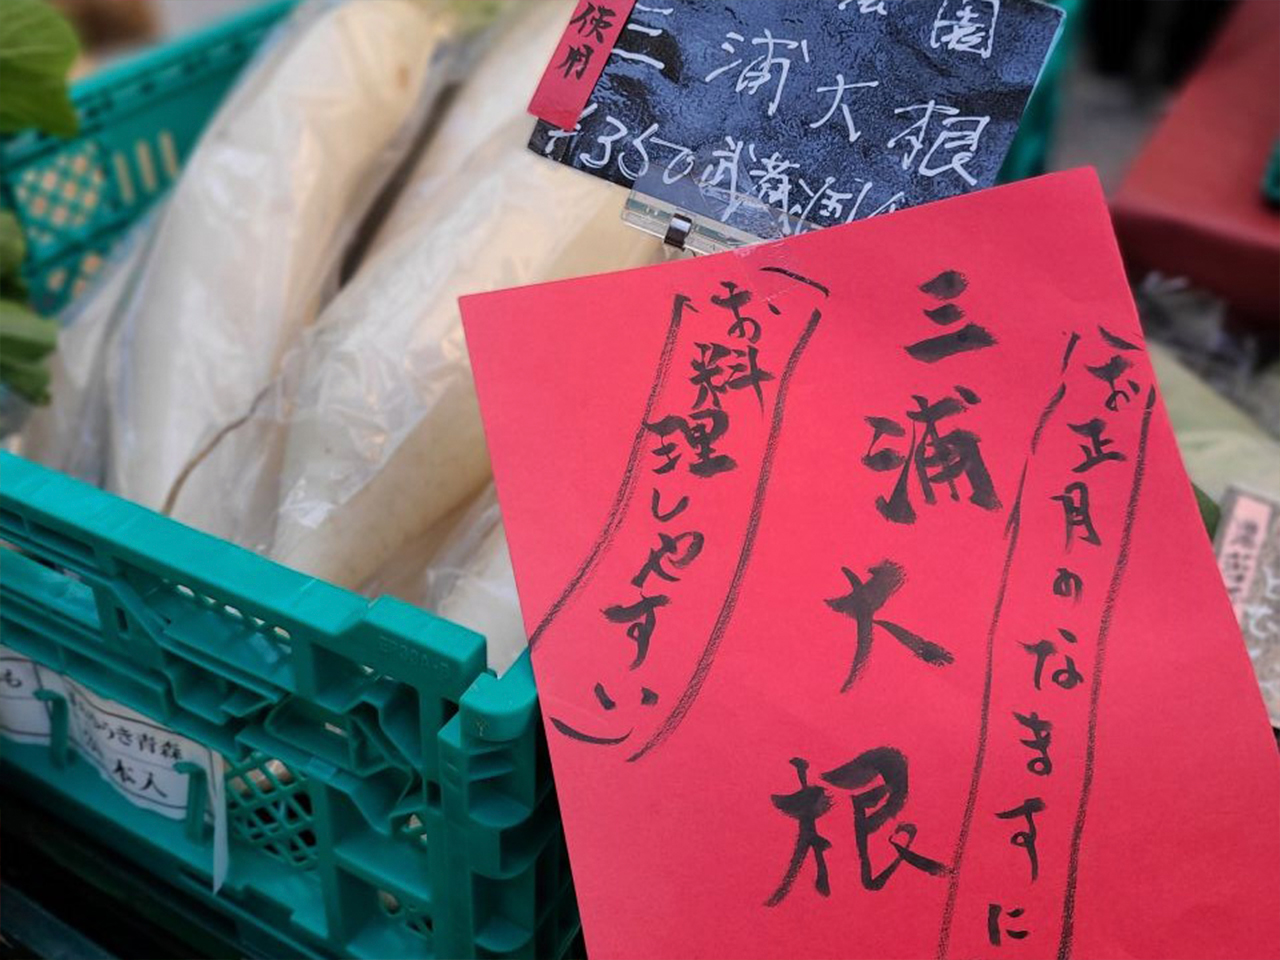 使用
園
三浦大根
¥350
お正月のなますに
三浦大根
お料理しやすい
き青森
本入
も